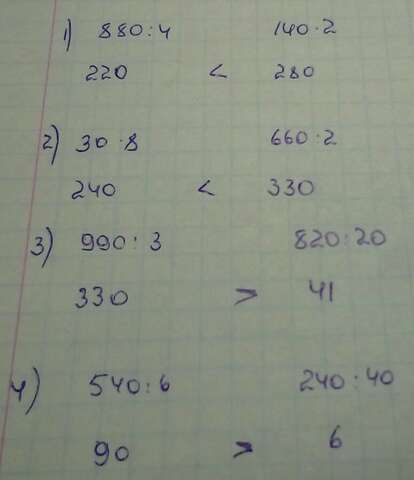 1) 880:4 140·2
220 < 280
2) 30·8 660·2
240 < 330
3) 990:3 820:20
330 > 41
4) 540:6 240:40
90 > 6